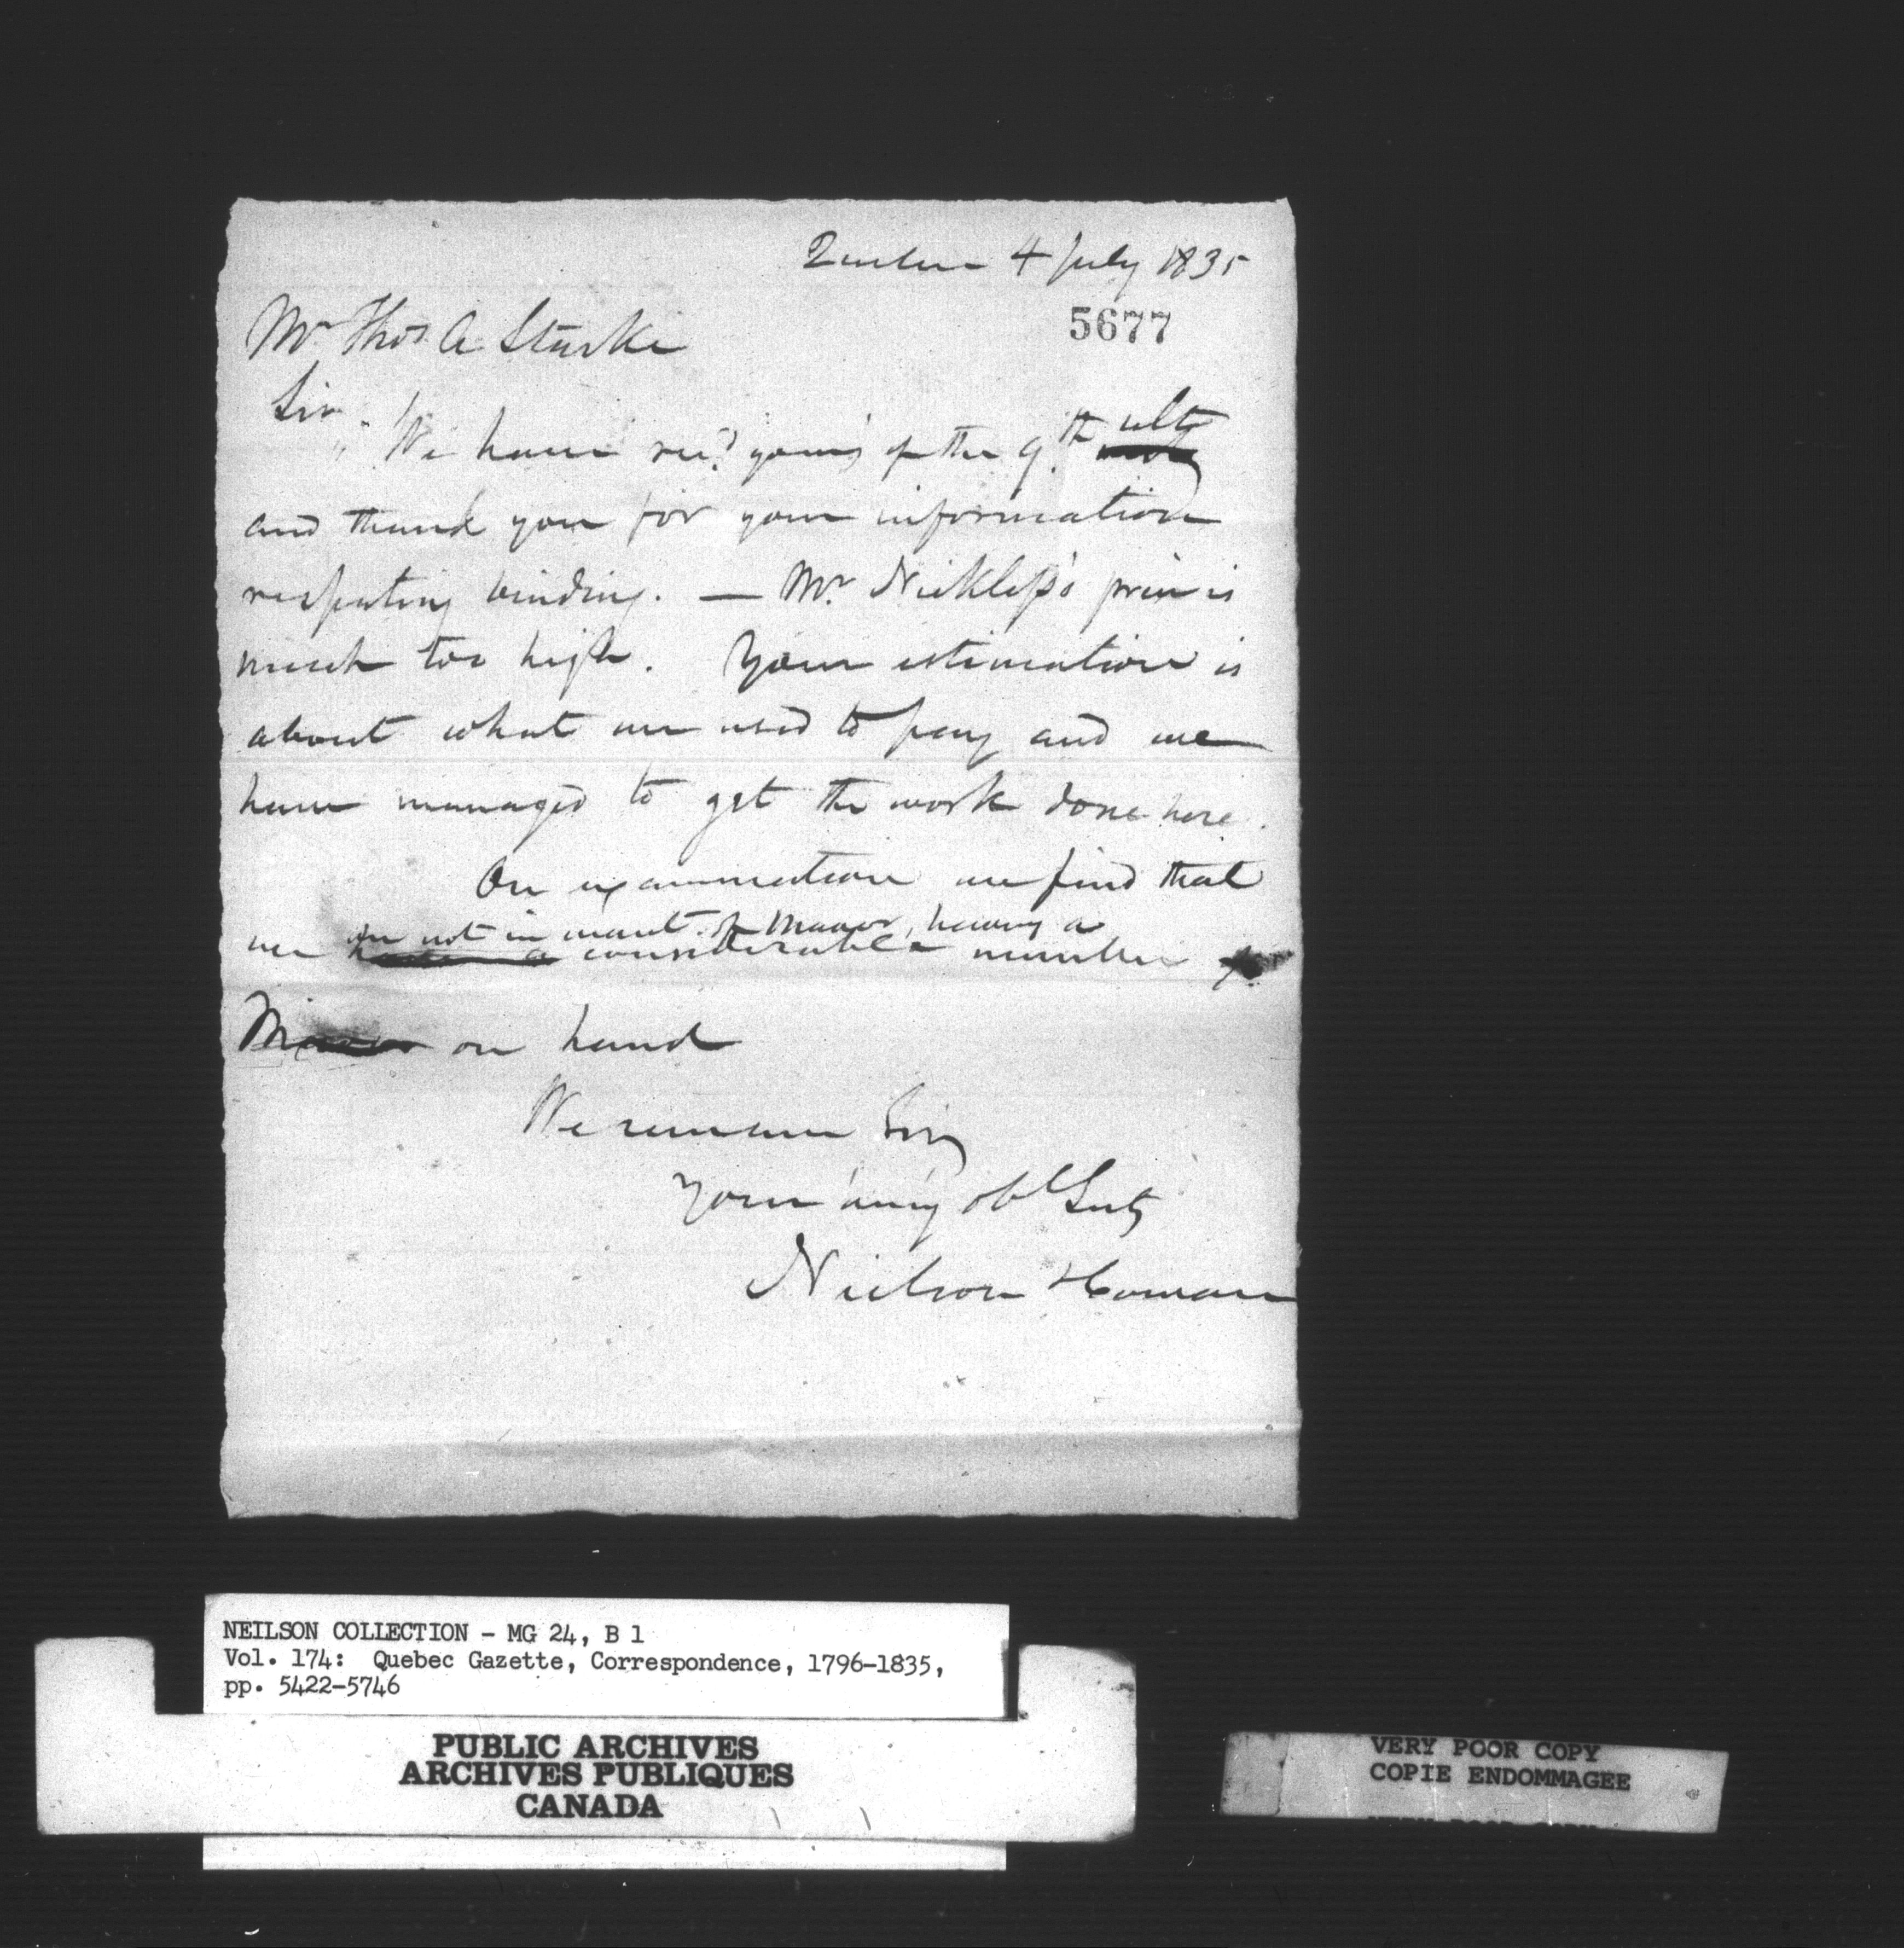 Quebec 4 July 1835
5677
Mr Thos A Starke
Sir,
We have recd yours of the 9th ult
and thank you for your information
respecting binding. — Mr. Nickless's price is
much too high. Your estimation is
about what we used to pay and we
have managed to get the work done here.
On examination we find that
are not in want of Mavor, having a
we have a considerable number of
Mavor on hand
We remain Sir
Your very obt Servts
Neilson & Cowan
NEILSON COLLECTION - MG 24, B 1
Vol. 174: Quebec Gazette, Correspondence, 1796-1835,
pp. 5422-5746
PUBLIC ARCHIVES
ARCHIVES PUBLIQUES
CANADA
VERY POOR COPY
COPIE ENDOMMAGEE